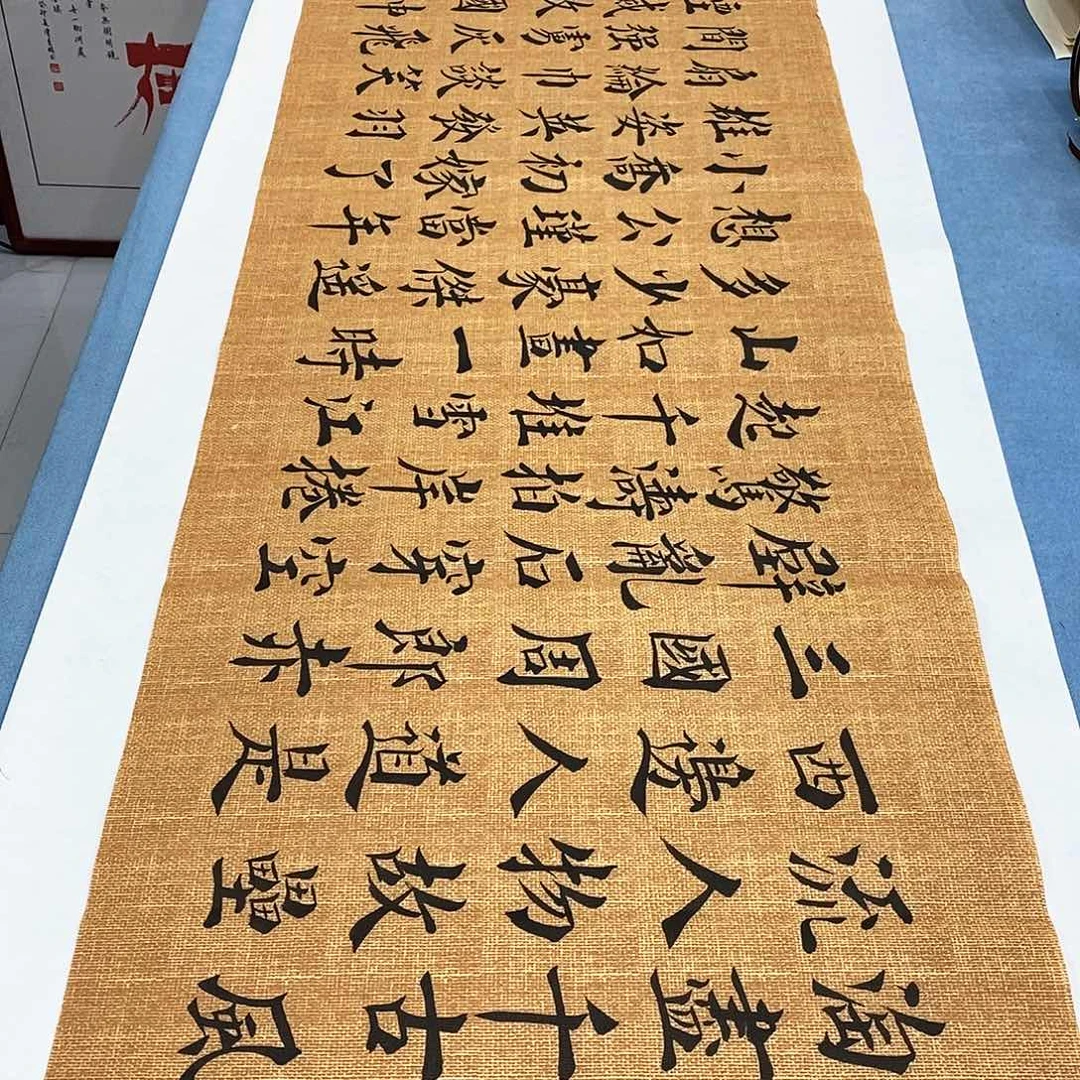 淘盡千古風
流人物故壘
西邊人道是
三國周郎赤
壁亂石穿空
驚濤拍岸捲
起千堆雪江
山如畫一時
多少豪傑遥
想公瑾當年
小喬初嫁了
雄姿英發羽
扇綸巾談笑
間强虜灰飛
滅故國神